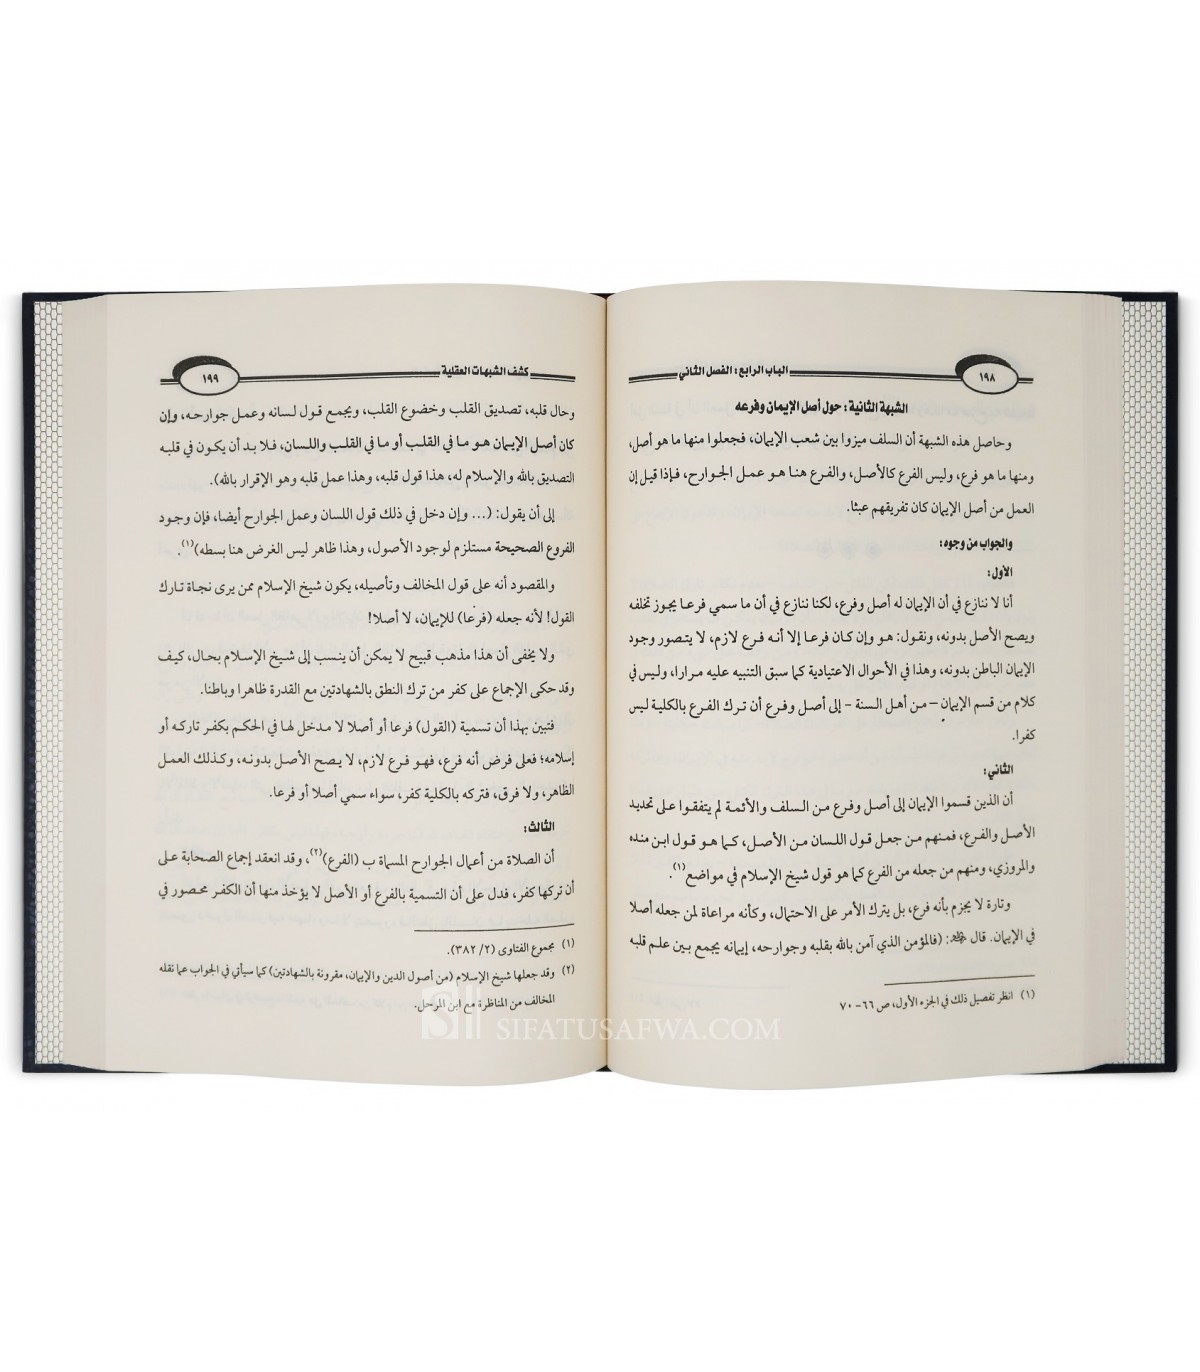 الباب الرابع: الفصل الثاني
١٩٨
الشبهة الثانية: حول أصل الإيمان وفرعه
وحاصل هذه الشبهة أن السلف ميزوا بين شعب الإيمان، فجعلوا منها ما هو أصل،
ومنها ما هو فرع، وليس الفرع كالأصل، والفرع هنا هو عمل الجوارح، فإذا قيل إن
العمل من أصل الإيمان كان تفريقهم عبثا.
والجواب من وجوه:
الأول:
أنا لا ننازع في أن الإيمان له أصل وفرع، لكنا ننازع في أن ما سمي فرعا يجوز تخلفه
ويصح الأصل بدونه، ونقول: هو وإن كان فرعا إلا أنه فرع لازم، لا يتصور وجود
الإيمان الباطن بدونه، وهذا في الأحوال الاعتيادية كما سبق التنبيه عليه مرارا، وليس في
كلام من قسم الإيمان – من أهل السنة – إلى أصل وفرع أن ترك الفرع بالكلية ليس
كفرا.
الثاني:
أن الذين قسموا الإيمان إلى أصل وفرع من السلف والأئمة لم يتفقوا على تحديد
الأصل والفرع، فمنهم من جعل قول اللسان من الأصل، كما هو قول ابن منده
والمروزي، ومنهم من جعله من الفرع كما هو قول شيخ الإسلام في مواضع(١).
وتارة لا يجزم بأنه فرع، بل يترك الأمر على الاحتمال، وكأنه مراعاة لمن جعله أصلا
في الإيمان. قال : (فالمؤمن الذي آمن بالله بقلبه وجوارحه، إيمانه يجمع بين علم قلبه
(١) انظر تفصيل ذلك في الجزء الأول، ص ٦٦- ٧٠
كشف الشبهات العقلية
١٩٩
وحال قلبه، تصديق القلب وخضوع القلب، ويجمع قول لسانه وعمل جوارحه، وإن
كان أصل الإيمان هو ما في القلب أو ما في القلب واللسان، فلا بد أن يكون في قلبه
التصديق بالله والإسلام له، هذا قول قلبه، وهذا عمل قلبه وهو الإقرار بالله).
إلى أن يقول: (... وإن دخل في ذلك قول اللسان وعمل الجوارح أيضا، فإن وجود
الفروع الصحيحة مستلزم لوجود الأصول، وهذا ظاهر ليس الغرض هنا بسطه)(١).
والمقصود أنه على قول المخالف وتأصيله، يكون شيخ الإسلام ممن يرى نجاة تارك
القول! لأنه جعله (فرعا) للإيمان، لا أصلا!
ولا يخفى أن هذا مذهب قبيح لا يمكن أن ينسب إلى شيخ الإسلام بحال، كيف
وقد حكى الإجماع على كفر من ترك النطق بالشهادتين مع القدرة ظاهرا وباطنا.
فتبين بهذا أن تسمية (القول) فرعا أو أصلا لا مدخل لها في الحكم بكفر تاركه أو
إسلامه؛ فعلى فرض أنه فرع، فهو فرع لازم، لا يصح الأصل بدونه، وكذلك العمل
الظاهر، ولا فرق، فتركه بالكلية كفر، سواء سمي أصلا أو فرعا.
الثالث:
أن الصلاة من أعمال الجوارح المسماة ب (الفرع)(٢)، وقد انعقد إجماع الصحابة على
أن تركها كفر، فدل على أن التسمية بالفرع أو الأصل لا يؤخذ منها أن الكفر محصور في
(١) مجموع الفتاوى (٢/ ٣٨٢).
(٢) وقد جعلها شيخ الإسلام (من أصول الدين والإيمان، مقرونة بالشهادتين) كما سيأتي في الجواب عما نقله
المخالف من المناظرة مع ابن المرحل.
SIFATUSAFWA.COM